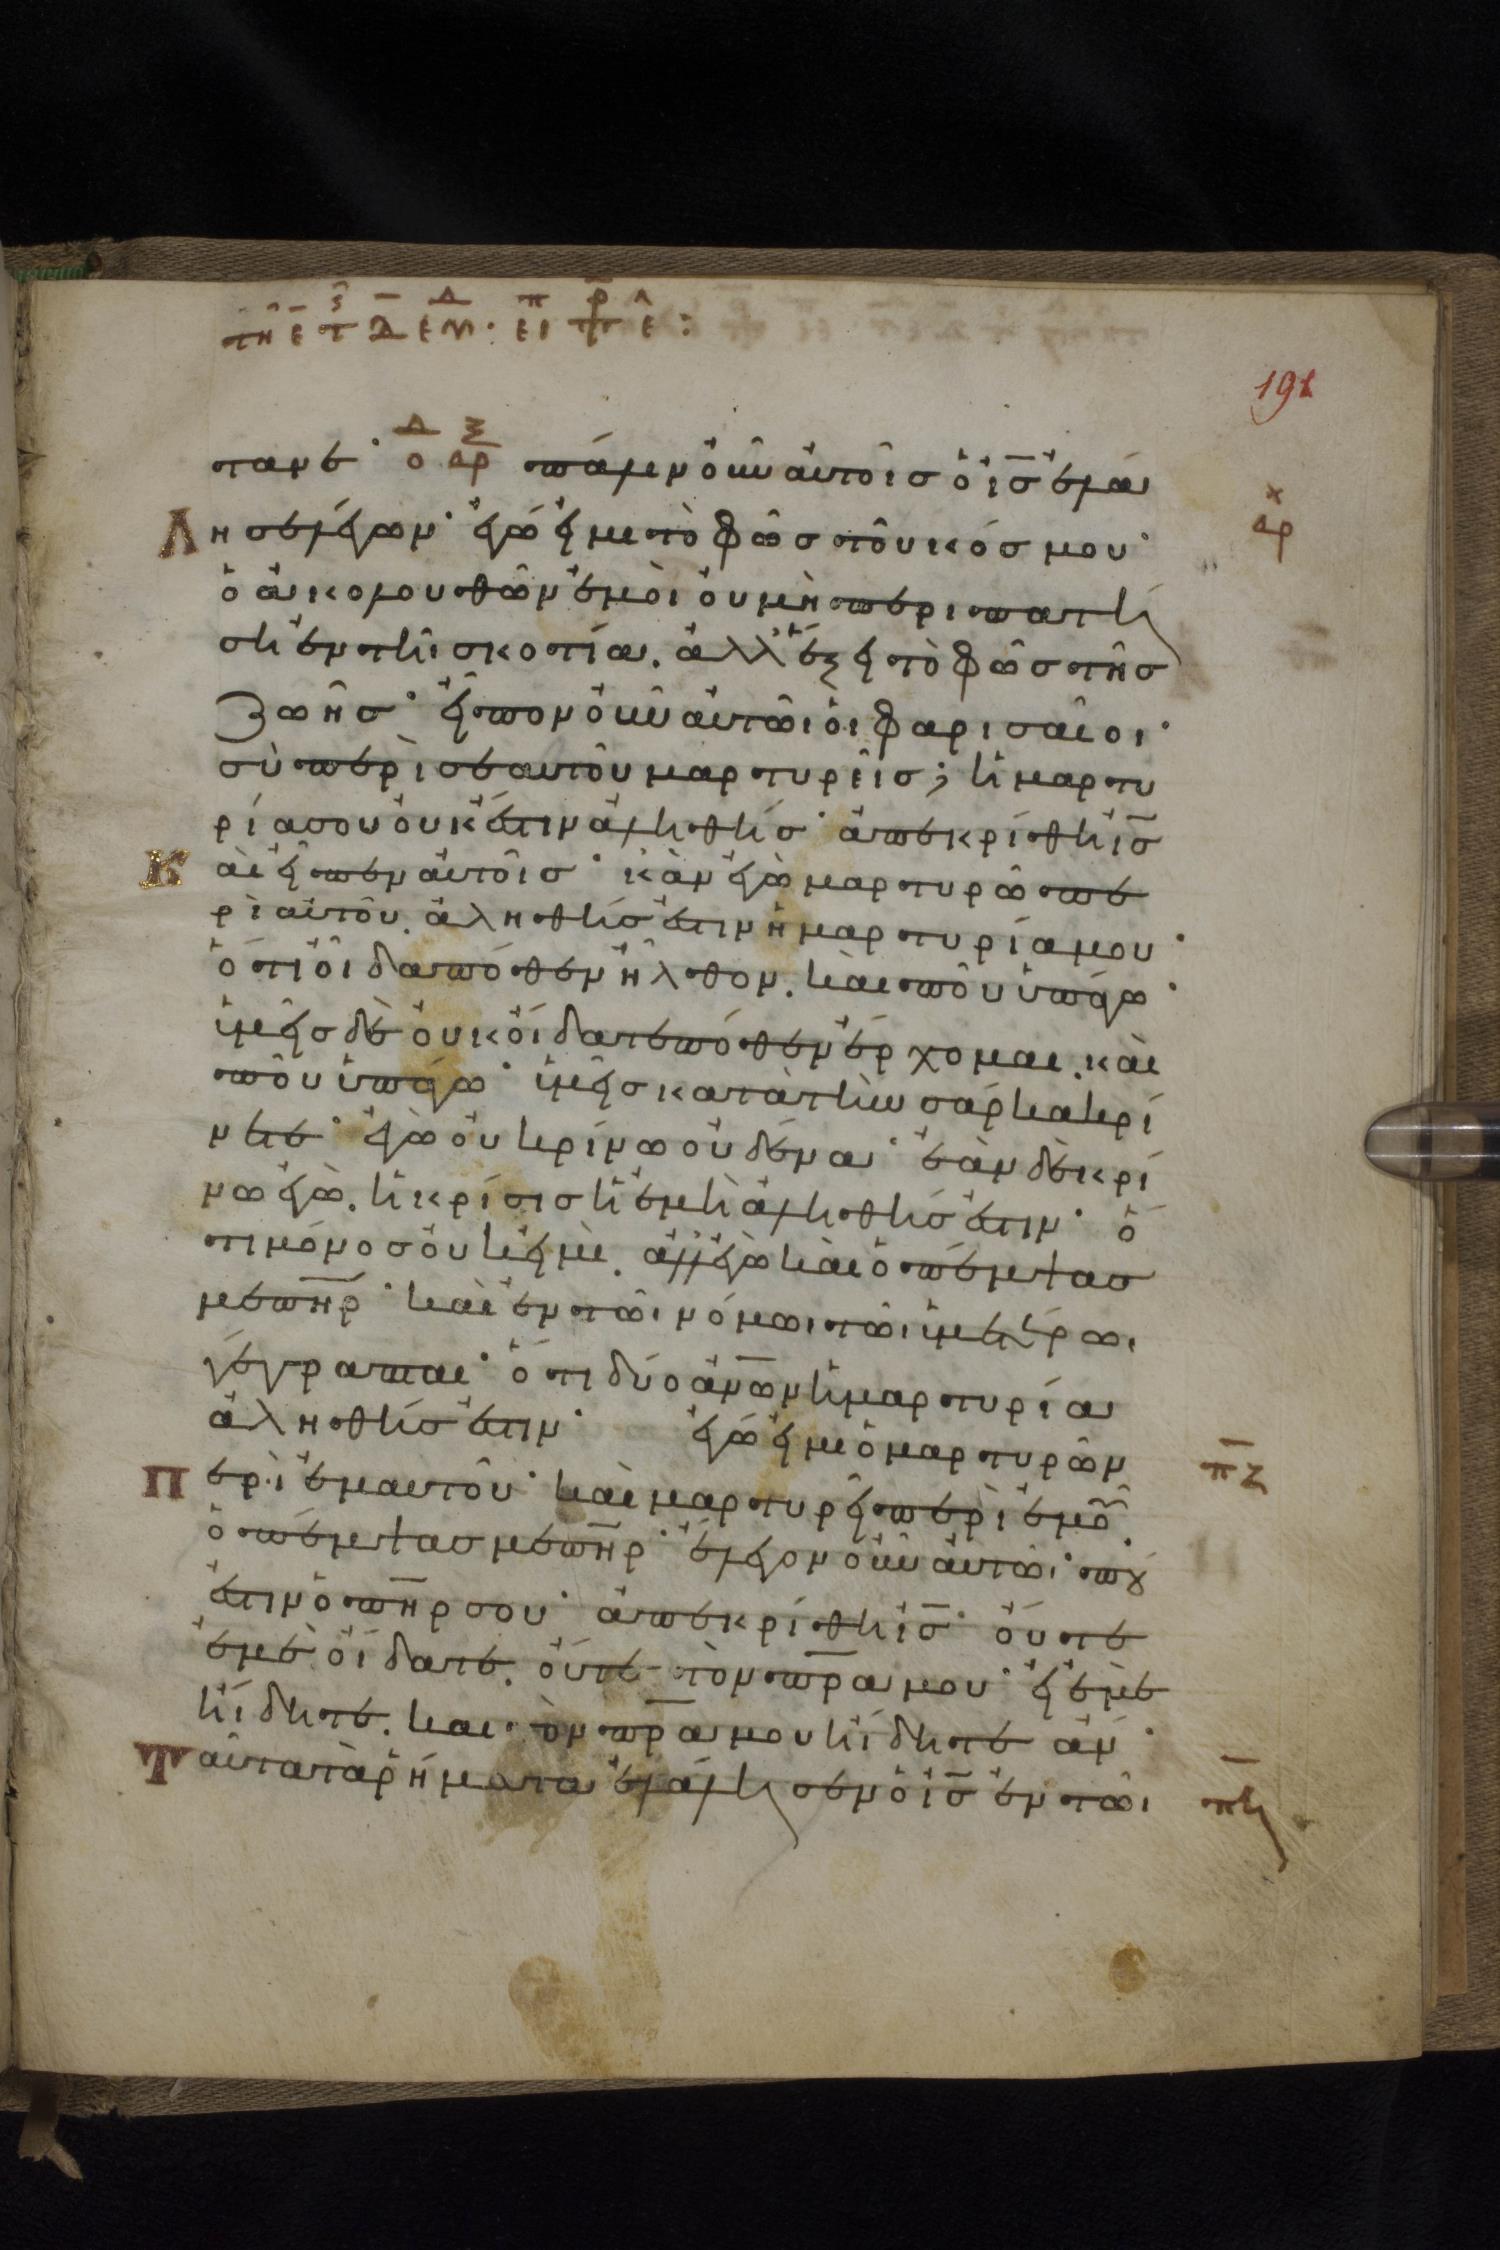 191
ταμε· πάλιν οὖν αὐτοῖς ὁ ις ἐλά
λησε λέγων· ἐγώ εἰμι τὸ φῶς τοῦ κόσμου·
ὁ ἀκολουθῶν ἐμοὶ οὐ μὴ περιπατή
ση ἐν τῆι σκοτία. ἀλλ' ἕξει τὸ φῶς τῆς
ζωῆς· εἶπον οὖν αὐτῶι οἱ φαρισαῖοι·
σὺ περὶ σεαυτοῦ μαρτυρεῖς; ἡ μαρτυ
ρία σου οὐκ ἔστιν ἀληθής· ἀπεκρίθη ις
καὶ εἶπεν αὐτοῖς· κἂν ἐγὼ μαρτυρῶ πε
ρὶ αὐτοῦ. ἀληθής ἐστιν ἡ μαρτυρία μου·
ὅτι οἶδα πόθεν ἦλθον. καὶ ποῦ ὑπάγω·
ὑμεῖς δὲ οὐκ οἴδατε πόθεν ἔρχομαι. καὶ
ποῦ ὑπάγω· ὑμεῖς κατὰ τὴν σάρκα κρί
νετε· ἐγὼ οὐ κρίνω οὐδένα· ἐὰν δὲ κρί
νω ἐγὼ. ἡ κρίσις ἡ ἐμὴ ἀληθής ἐστιν· ὅ
τι μόνος οὐκ εἰμὶ. ἀλλ' ἐγὼ καὶ ὁ πέμψας
με πηρ· καὶ ἐν τῶι νόμωι τῶι ὑμετέρωι
γέγραπται· ὅτι δύο ἀνων ἡ μαρτυρία
ἀληθής ἐστιν· ἐγώ εἰμι ὁ μαρτυρῶν πζ
περὶ ἐμαυτοῦ· καὶ μαρτυρεῖ περὶ ἐμοῦ
ὁ πέμψας με πηρ· ἔλεγον οὖν αὐτῶι· ποῦ
ἐστιν ὁ πηρ σου· ἀπεκρίθη ις· οὔτε
ἐμὲ οἴδατε. οὔτε τὸν πρα μου· εἰ ἐμὲ
ἤδητε. καὶ τὸν πρα μου ἤδητε ἄν·
Ταῦτα τὰ ῥήματα ἐλάλησεν ὁ ις ἐν τῶι πη